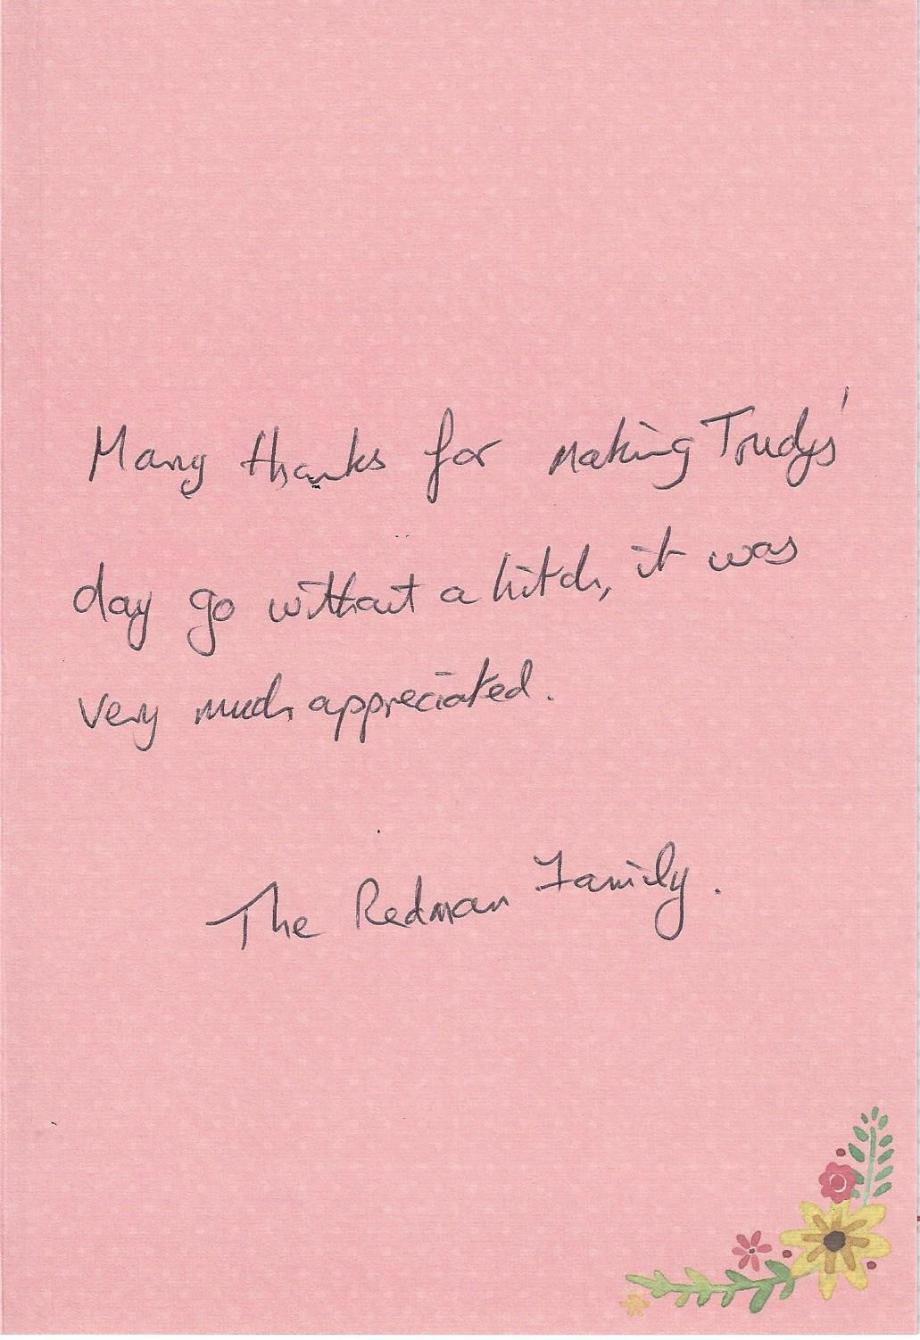 Many thanks for making Trudys'
day go without a hitch, it was
very much appreciated.
The Redman Family.